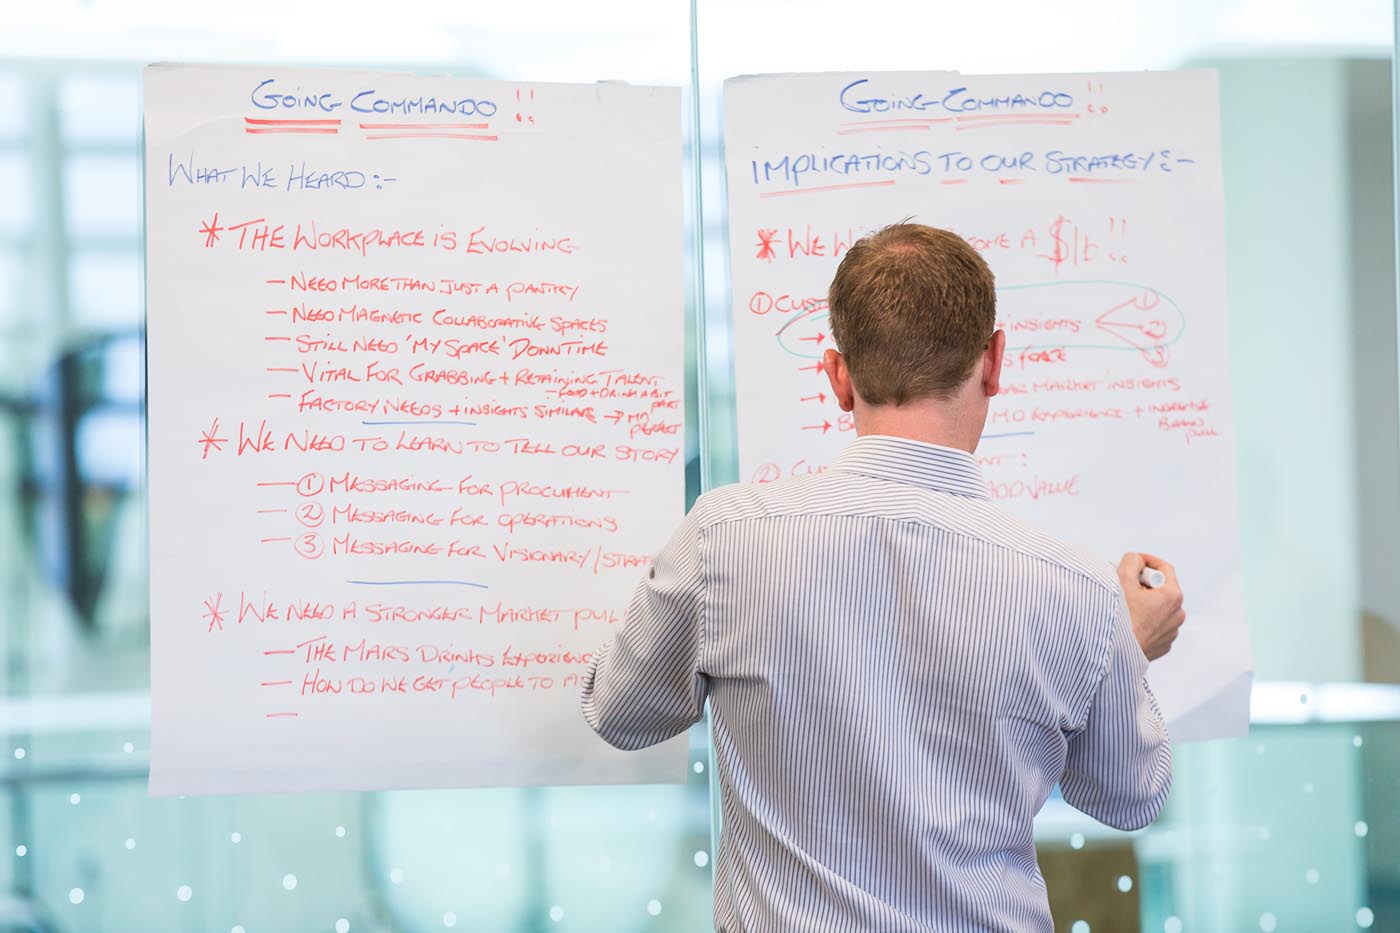 GOING COMMANDO !!
WHAT WE HEARD :-
* THE WORKPLACE IS EVOLVING
- NEED MORE THAN JUST A PANTRY
- NEED MAGNETIC COLLABORATIVE SPACES
- STILL NEED 'MY SPACE' DOWNTIME
- VITAL FOR GRABBING + RETAINING TALENT
- FOOD + DRINK A BIT PART
- FACTORY NEEDS + INSIGHTS SIMILAR → MD PERFECT
* WE NEED TO LEARN TO TELL OUR STORY
- ① MESSAGING FOR PROCUMENT
- ② MESSAGING FOR OPERATIONS
- ③ MESSAGING FOR VISIONARY / STRAT
* WE NEED A STRONGER MARKET PUL
- THE MARS DRINKS EXPERIENC
- HOW DO WE GET PEOPLE TO A
-
GOING COMMANDO !!
IMPLICATIONS TO OUR STRATEGY :-
* WE W OME A $1b !!
① CUST
→ + INSIGHTS ① ② ③
→ S FORCE
→ AR MARKET INSIGHTS
→ B MD EXPERIENCE +
② CU NT :
ADD VALUE